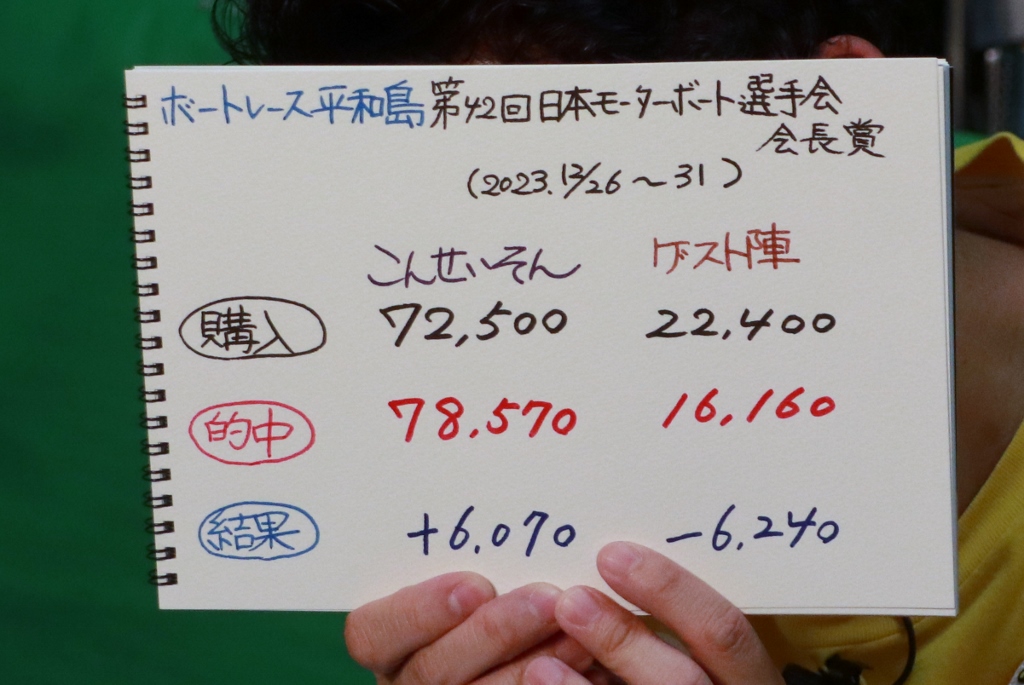 ボートレース平和島第42回日本モーターボート選手会
会長賞
(2023.12/26～31)
こんせいそん ゲスト陣
購入 72,500 22,400
的中 78,570 16,160
結果 +6,070 -6,240